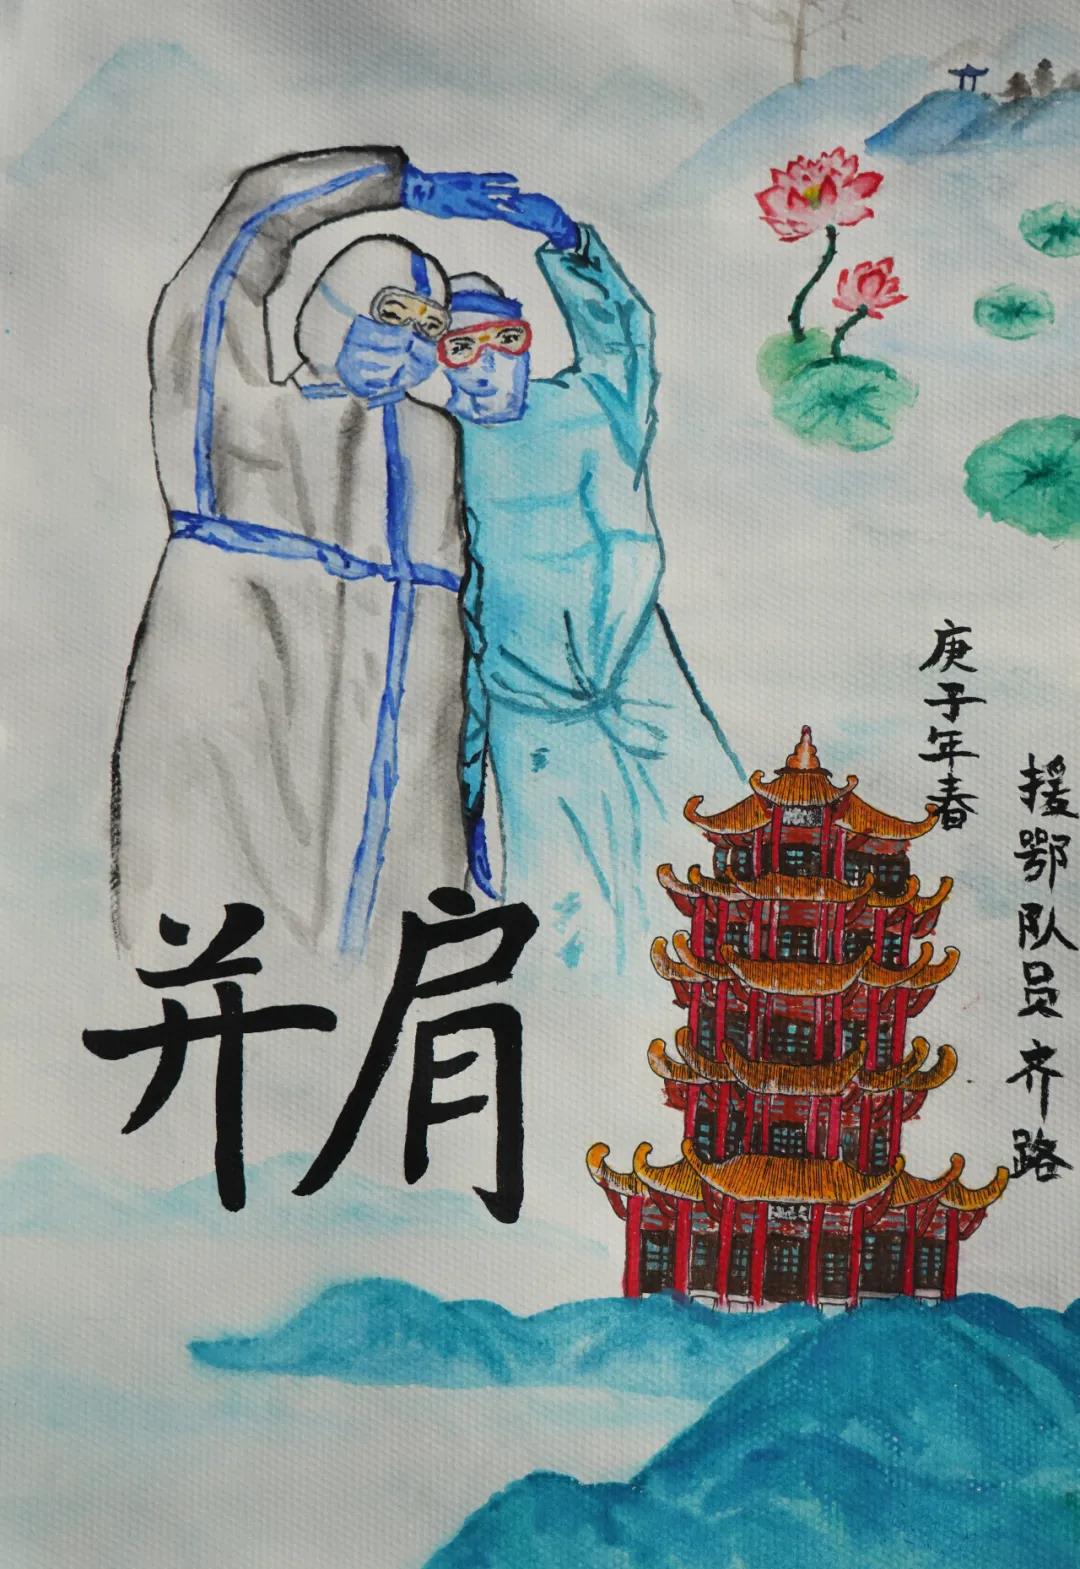 庚子年春
援鄂队员齐路
并肩